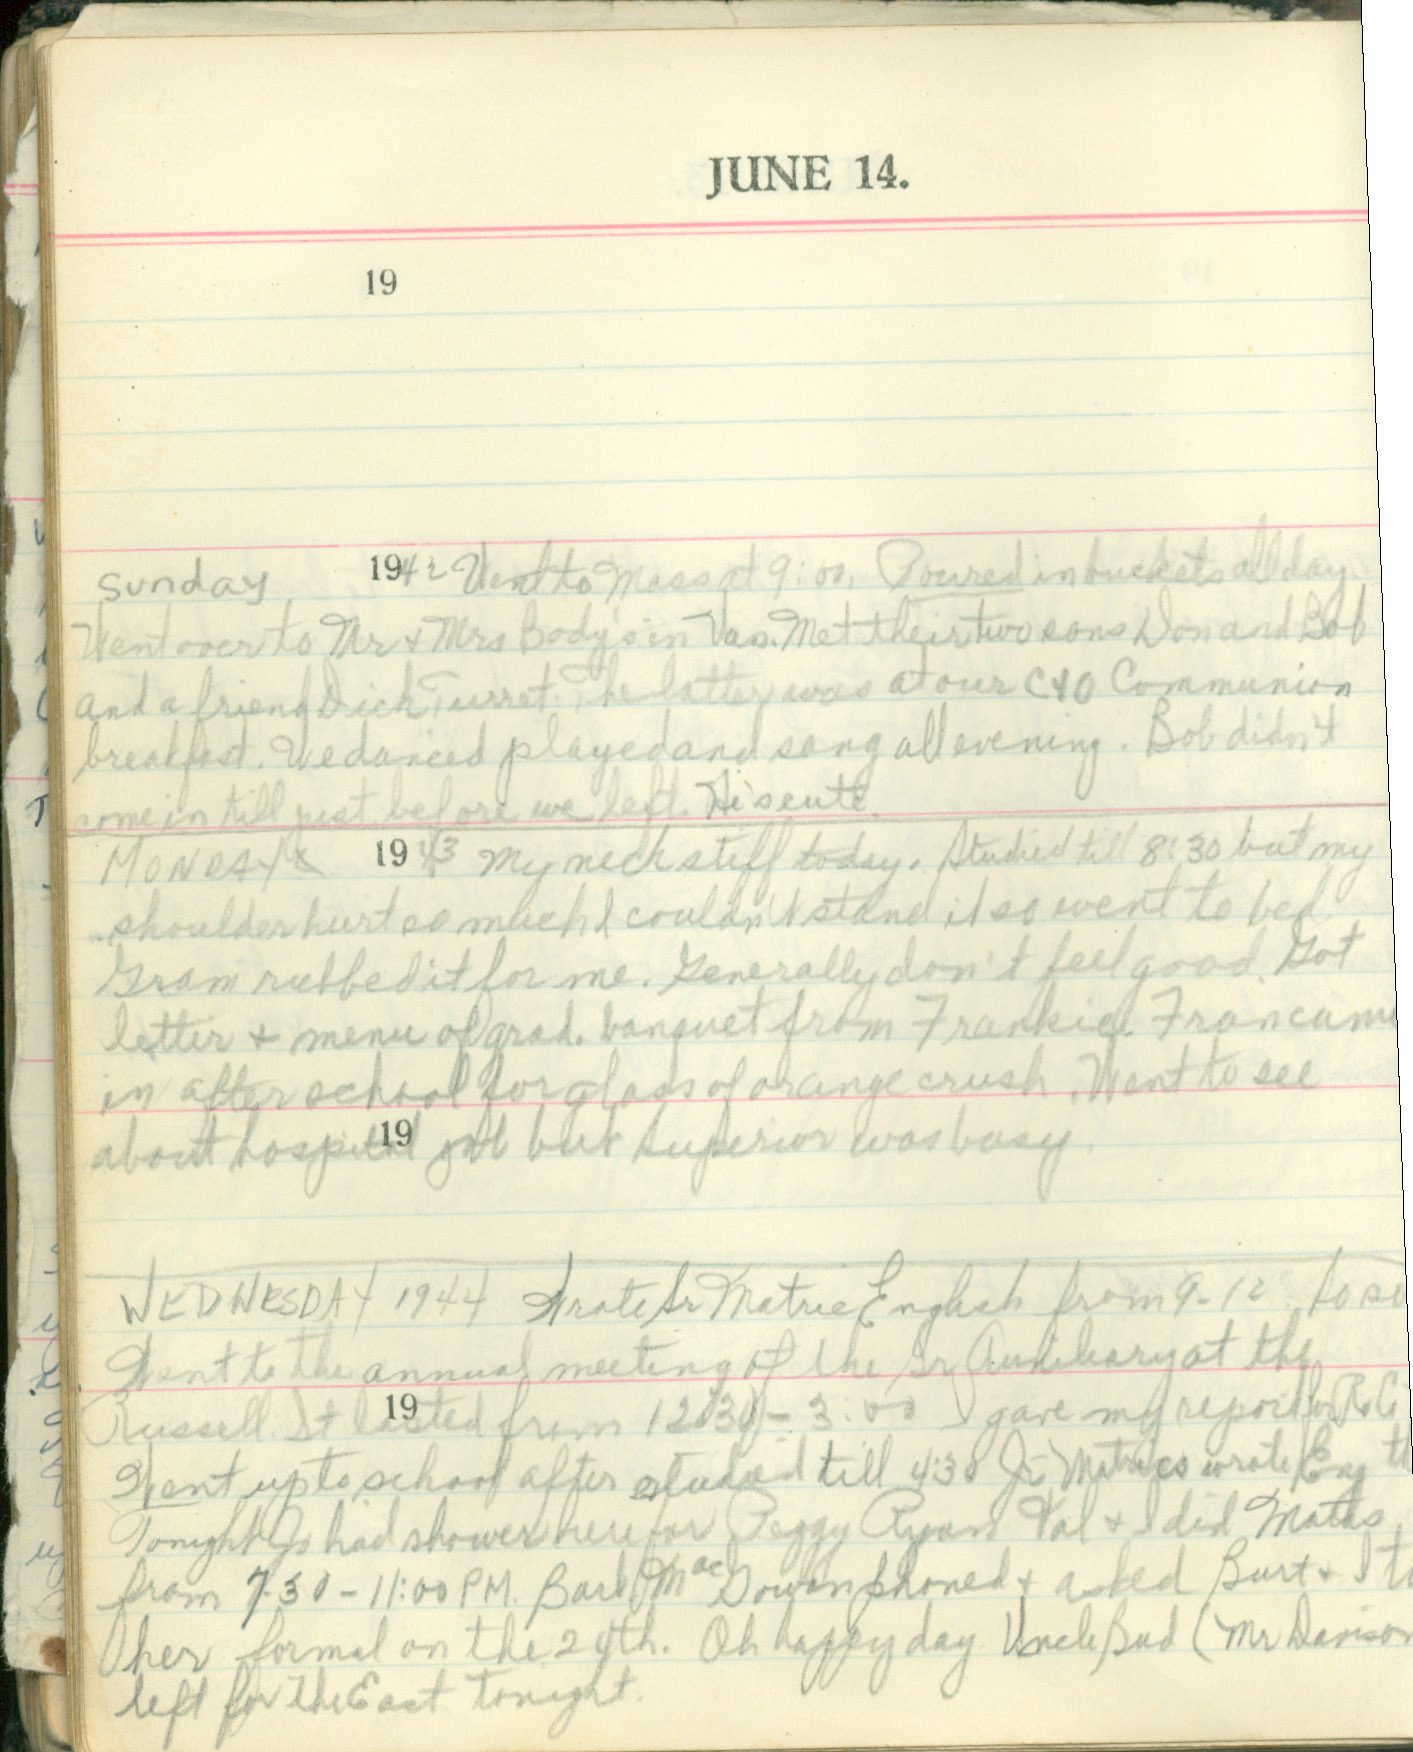 JUNE 14.
19
Sunday 1942 Went to Mass at 9:00. Poured in buckets all day.
Went over to Mr + Mrs Body's in Van. Met their two sons Don and Bob
and a friend Dick Turret. The latter was at our CYO Communion
breakfast. We danced played and sang all evening. Bob didn't
come in till just before we left. He's cute.
MONDAY 1943 My neck stiff today. Studied till 8:30 but my
shoulder hurt so much I couldn't stand it so went to bed.
Gram rubbed it for me. Generally don't feel good. Got
letter + menu of grad. banquet from Frankie. Fran came
in after school for glass of orange crush. Went to see
19
about hospital job but Superior was busy.
WEDNESDAY 1944 Wrote Sr Matric English from 9-12. so so
Went to the annual meeting of the Sr Auxiliary at the
19
Russell St lasted from 12:30 - 3:00 I gave my report for R.C.
Went up to school after studied till 4:30 Jr Matrics wrote Eng
Tonight Jo had shower here for Peggy Ryan Val + I did Maths
from 7:30 - 11:00 PM. Barb Mac phoned + asked Burt + I to
her formal on the 24th. Oh happy day. Uncle Bud (Mr Davison
left for the East tonight.